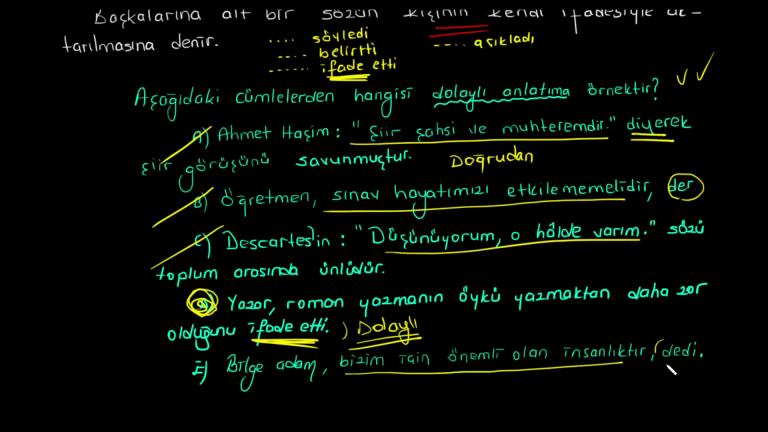 Başkalarına ait bir sözün kişinin kendi ifadesiyle ak-
tarılmasına denir.
.... söyledi
.... belirtti
...... ifade etti
.... açıkladı
Aşağıdaki cümlelerden hangisi dolaylı anlatıma örnektir?
A) Ahmet Haşim: "Şiir şahsi ve muhteremdir." diyerek
şiir görüşünü savunmuştur. Doğrudan
B) Öğretmen, sınav hayatımızı etkilememelidir, der
C) Descartes'in: "Düşünüyorum, o hâlde varım." sözü
toplum arasında ünlüdür.
Yazar, roman yazmanın öykü yazmaktan daha zor
olduğunu ifade etti. ) Dolaylı
E) Bilge adam, bizim için önemli olan insanlıktır, dedi.